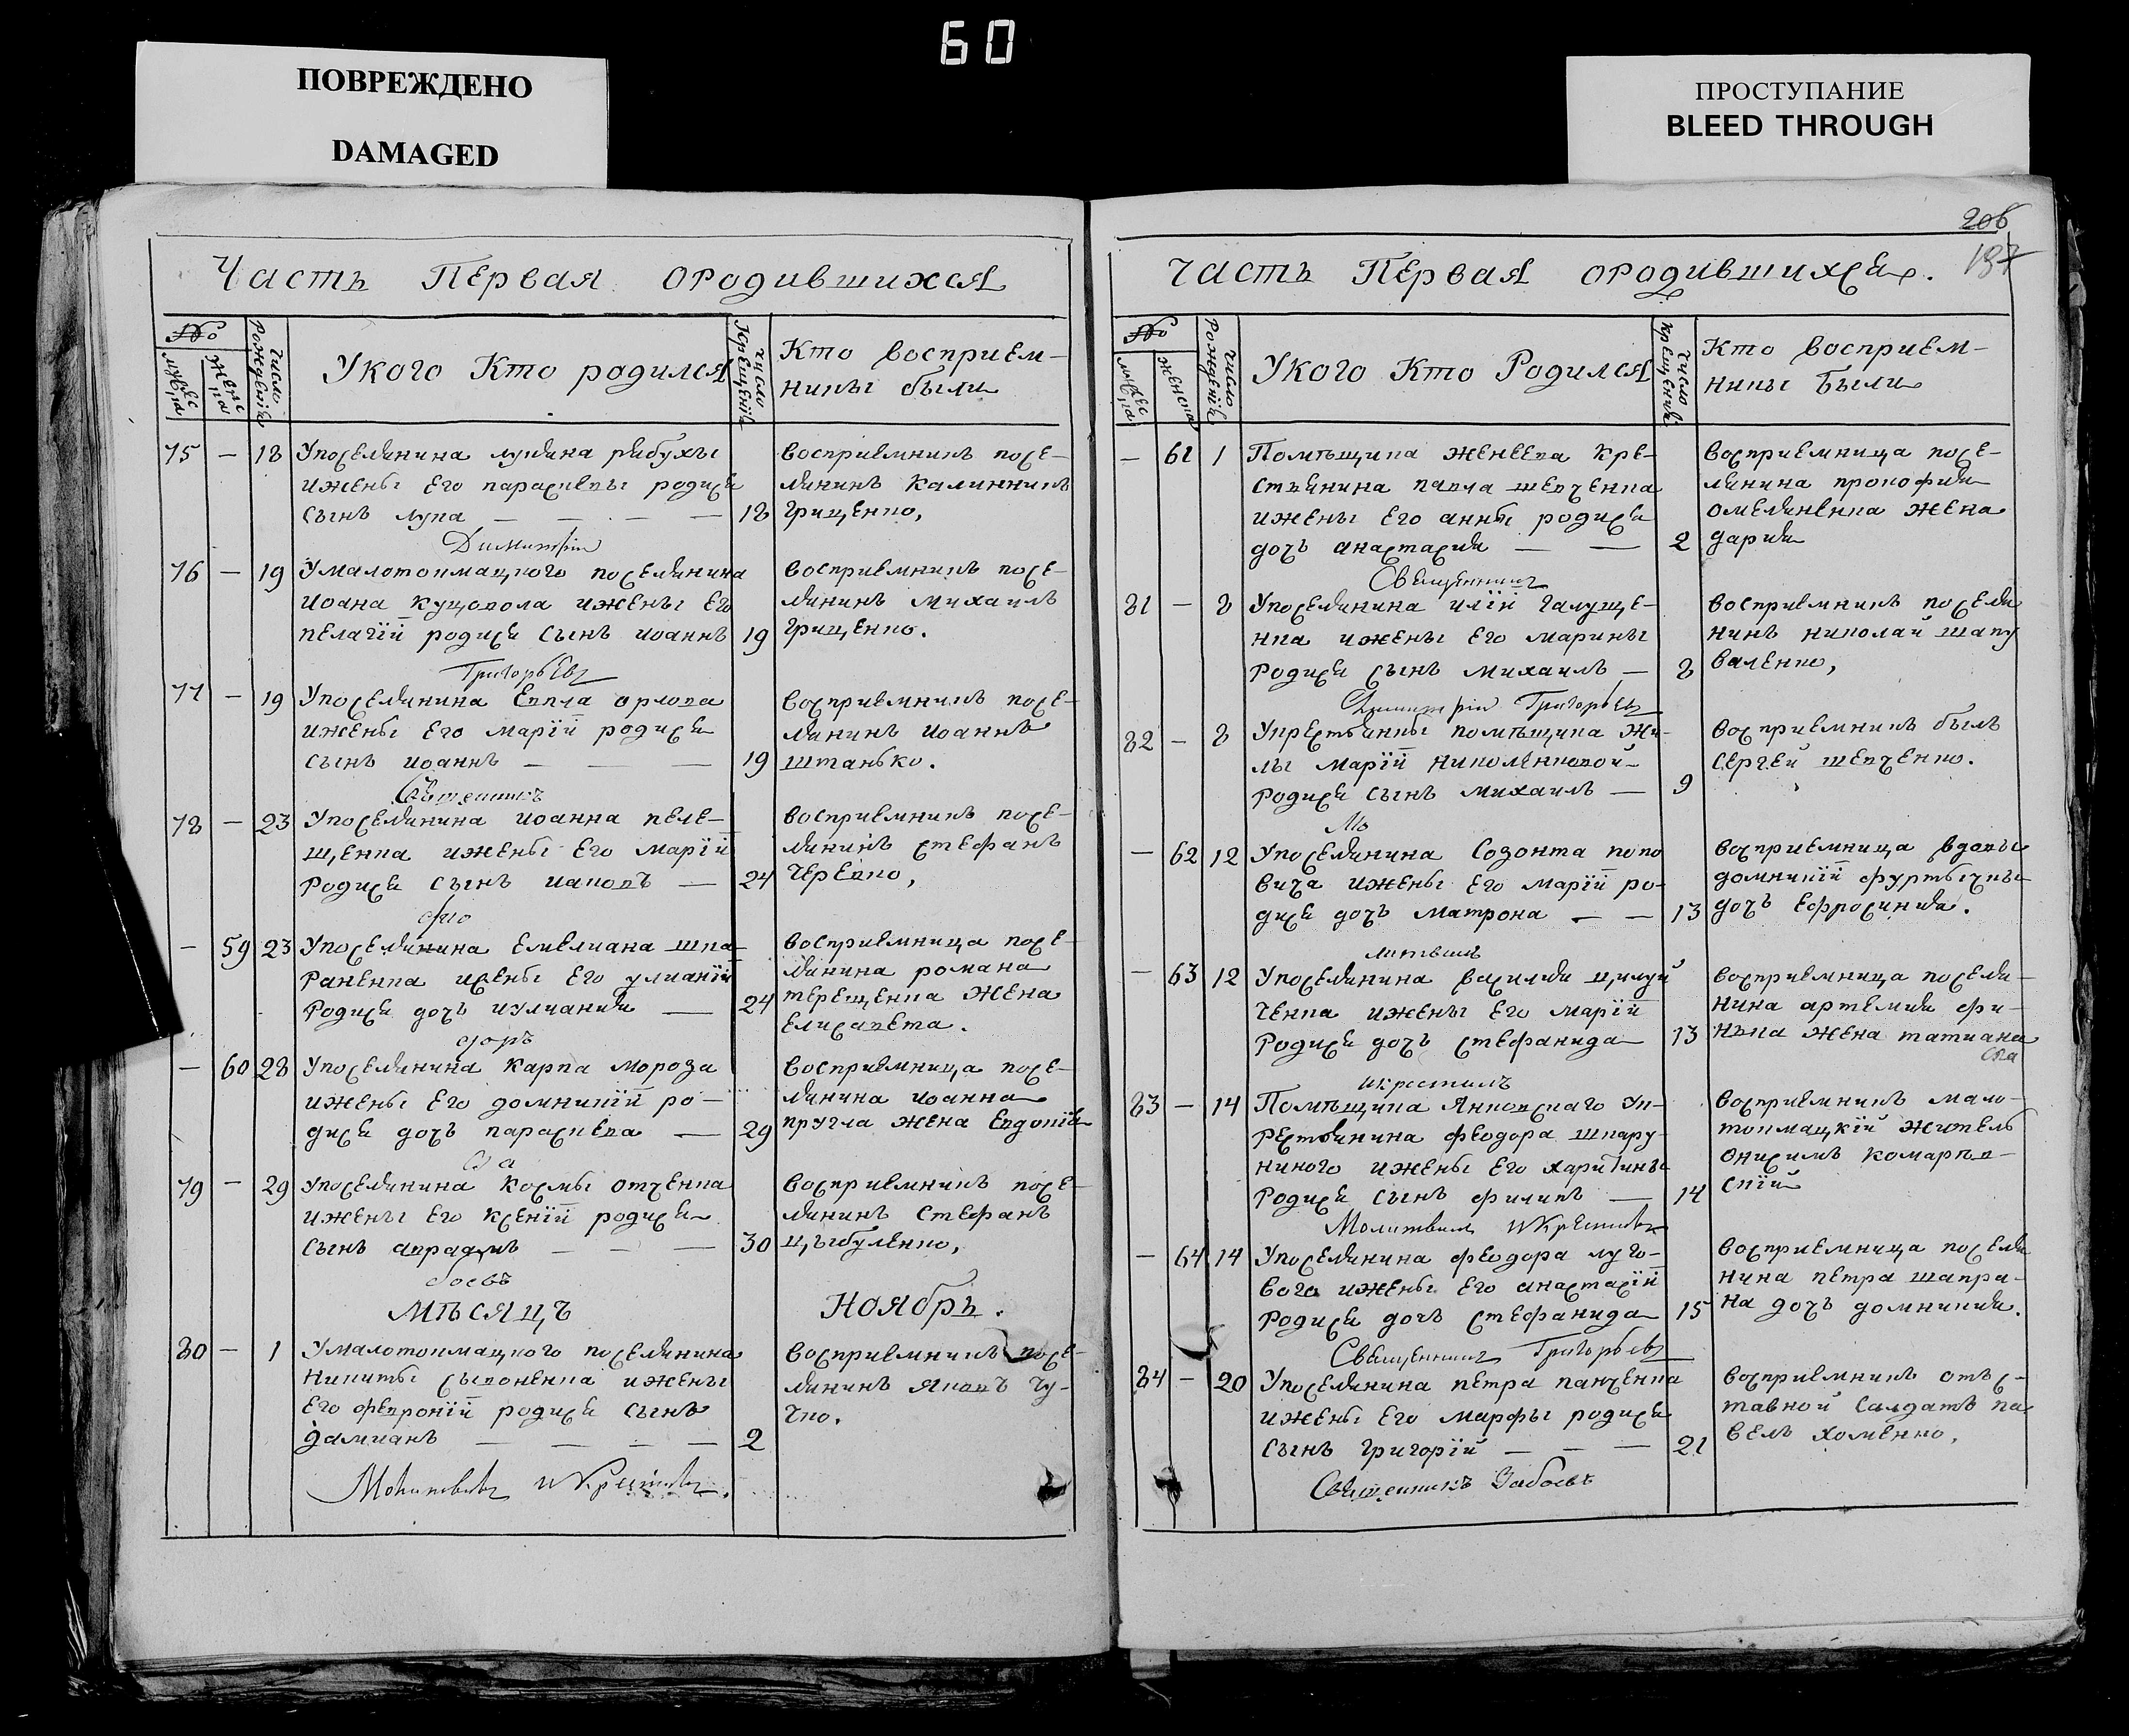 60
ПОВРЕЖДЕНО
DAMAGED
ПРОСТУПАНИЕ
BLEED THROUGH
Часть Первая ородившихся
№
мужеска
женска
Число Рождения
Укого Кто родился
Число Крещения
Кто восприем-
ники были
75 — 18 Упоселянина лукяна рябухы
ижены его параскевы родися
сынъ лупа — — — — 18
восприемникъ посе-
лянинъ калинникъ
грищенко,
Димитрій
76 — 19 Умалотокмацкого поселянина
иоана куцовола ижены его
пелагіи родися сынъ иоаннъ 19
восприемникъ посе-
лянинъ михаилъ
грищенко.
Григорьевъ
77 — 19 Упоселянина Евпла орлова
ижены его маріи родися
сынъ иоаннъ — — — 19
восприемникъ посе-
лянинъ иоаннъ
штанько.
Священникъ
78 — 23 Упоселянина иоанна пеле-
щенка ижены его маріи
родися сынъ иаковъ — 24
восприемникъ посе-
лянинъ стефанъ
черевко,
— 59 23 Упоселянина емелиана шпа-
раненка ижены его улианіи
родися дочъ иулиания — 24
восприемница посе-
лянина романа
терещенка жена
елисавета.
— 60 28 Упоселянина карпа мороза
ижены его домникіи ро-
дися дочъ параскева — 29
восприемница посе-
лянина иоанна
кругла жена Евдокія
79 — 29 Упоселянина космы отченка
ижены его ксеніи родися
сынъ аврадмъ — — — 30
восприемникъ посе-
лянинъ стефанъ
цыбуленко,
боевъ
Мѣсяцъ Ноябрь.
80 — 1 Умалотокмацкого поселянина
никиты сывоненка ижены
его февроніи родися сынъ
дамианъ — — — — 2
восприемникъ посе-
лянинъ яковъ чу-
чко.
Молитвовалъ и Крестилъ.
206
187
Часть Первая ородившихся.
№
мужеска
женска
Число Рождения
Укого Кто Родился
Число Крещения
Кто восприем-
ники были
— 61 1 Помѣщика женеева кре-
стянина павла шевченка
ижены его анны родися
дочъ анастасия — — 2
восприемница посе-
лянина прокофия
омеляненка жена
дария
Священникъ
81 — 8 Упоселянина иліи галуще-
нка ижены его марины
родися сынъ михаилъ — 8
восприемникъ поселя
нинъ николай шапу
валенко,
Димитрій Григорьевъ
82 — 8 Укрестянки помѣщика жи-
лы маріи николенковой
родися сынъ михаилъ — 9
восприемникъ былъ
сергей шевченко.
Мо
— 62 12 Упоселянина созонта попо
вича ижены его маріи ро-
дися дочъ матрона — — 13
восприемница вдовы
домникіи фуртычны
дочъ ефросиния.
литвилъ
— 63 12 Упоселянина василия цилуй
ченка ижены его маріи
родися дочъ стефанида 13
восприемница поселя-
нина артемия фи-
нька жена татиана
икрестилъ
83 — 14 Помѣщика Янковскаго ук-
рестянина феодора шпару-
никого ижены его харитины
родися сынъ филипъ — 14
восприемникъ мало-
токмацкій житель
онисимъ комаров-
скій
Молитвилъ и Крестилъ
— 64 14 Упоселянина феодора луго-
вого ижены его анастасіи
родися дочъ стефанида 15
восприемница поселя
нина петра шапра-
на дочъ домникия.
Священникъ Григорьевъ
84 — 20 Упоселянина петра панченка
ижены его марфы родися
сынъ григорій — — — 21
восприемникъ отъс-
тавной салдатъ па-
велъ хоменко,
Священникъ Забоевъ